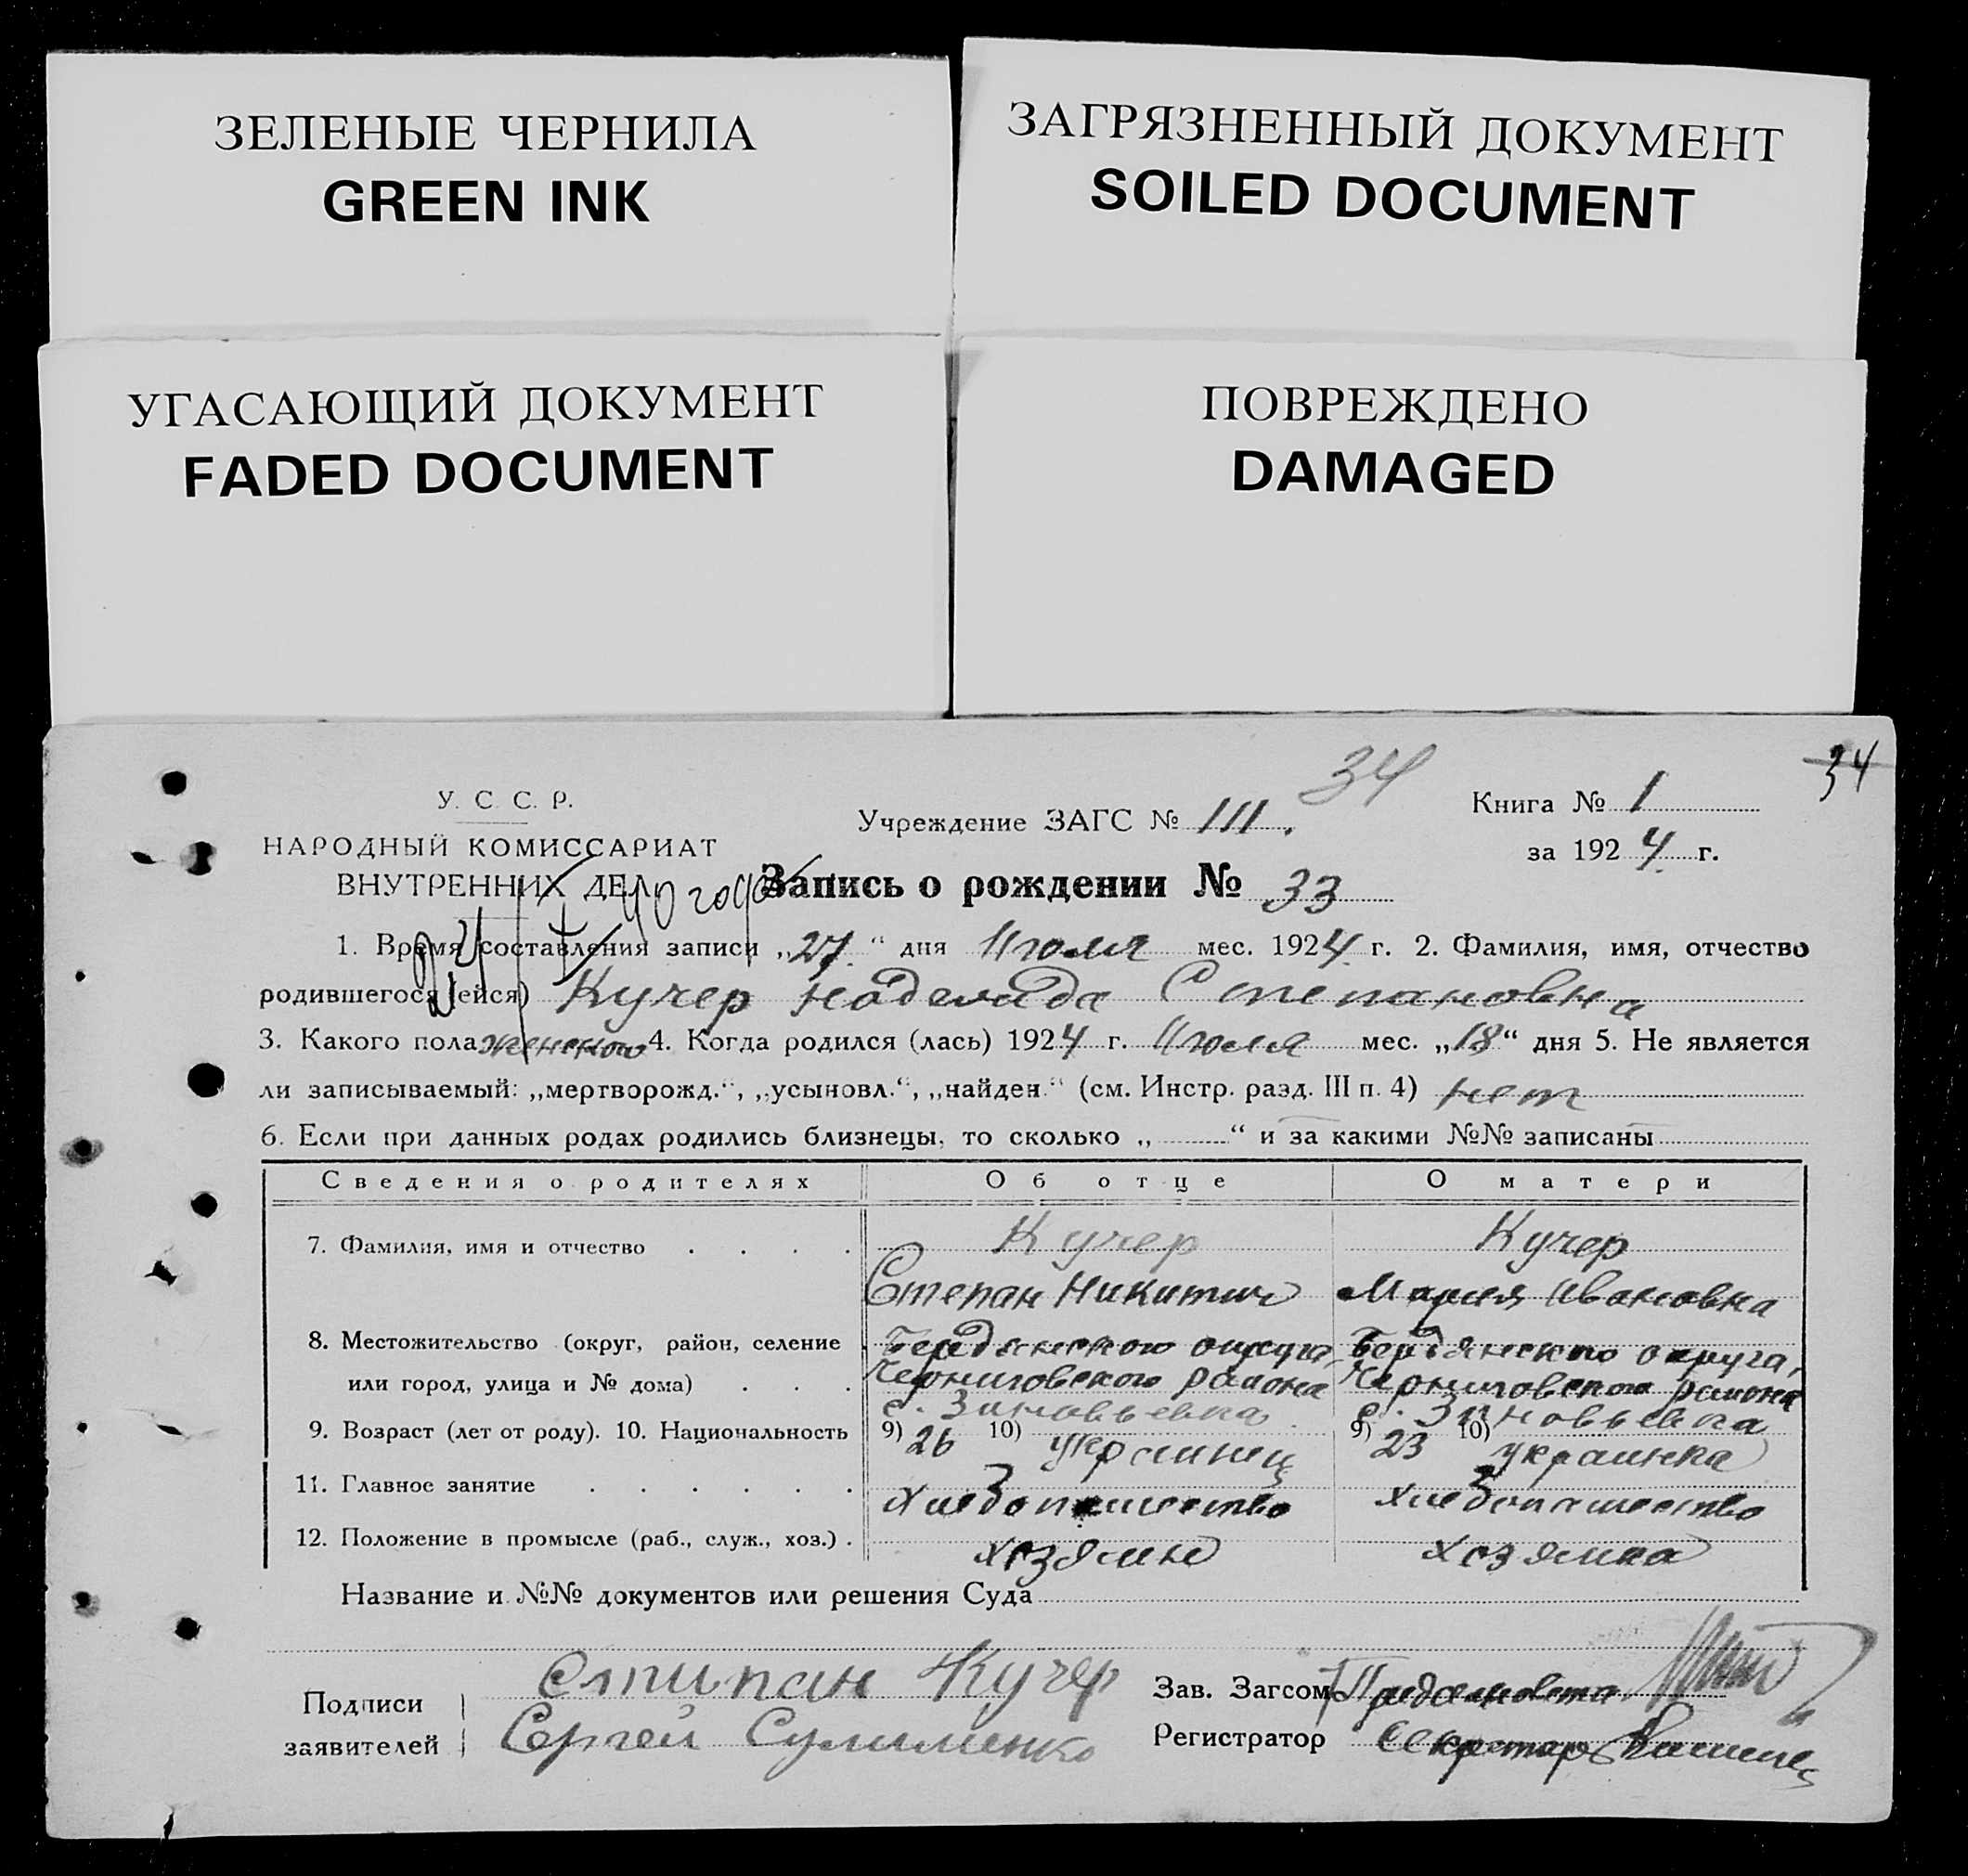 ЗЕЛЕНЫЕ ЧЕРНИЛА
GREEN INK
ЗАГРЯЗНЕННЫЙ ДОКУМЕНТ
SOILED DOCUMENT
УГАСАЮЩИЙ ДОКУМЕНТ
FADED DOCUMENT
ПОВРЕЖДЕНО
DAMAGED
34
34
У. С. С. Р.
НАРОДНЫЙ КОМИССАРИАТ
ВНУТРЕННИХ ДЕЛ
Учреждение ЗАГС № 111.
Книга № 1
за 1924 г.
Запись о рождении № 33
1. Время составления записи „27.“ дня Июля мес. 1924 г. 2. Фамилия, имя, отчество
родившегося (ейся) Кучер Надежда Степановна
3. Какого пола женского 4. Когда родился (лась) 1924 г. Июля мес. „18“ дня 5. Не является
ли записываемый: „мертворожд.“, „усыновл.“, „найден.“ (см. Инстр. разд. III п. 4) нет
6. Если при данных родах родились близнецы, то сколько „ “ и за какими №№ записаны
Сведения о родителях Об отце О матери
7. Фамилия, имя и отчество Кучер Кучер
Степан Никитич Мария Ивановна
8. Местожительство (округ, район, селение Бердянского округа, Бердянского округа,
или город, улица и № дома) Черниговского района Черниговского района
с. Зиновьевка с. Зиновьевка
9. Возраст (лет от роду). 10. Национальность 9) 26 10) украинец 9) 23 10) украинка
11. Главное занятие Хлебопашество Хлебопашество
12. Положение в промысле (раб., служ., хоз.) хозяин хозяйка
Название и №№ документов или решения Суда
Подписи Стипан Кучер Зав. Загсом Предсельсовета
заявителей Сергей Сулименко Регистратор Секретарь